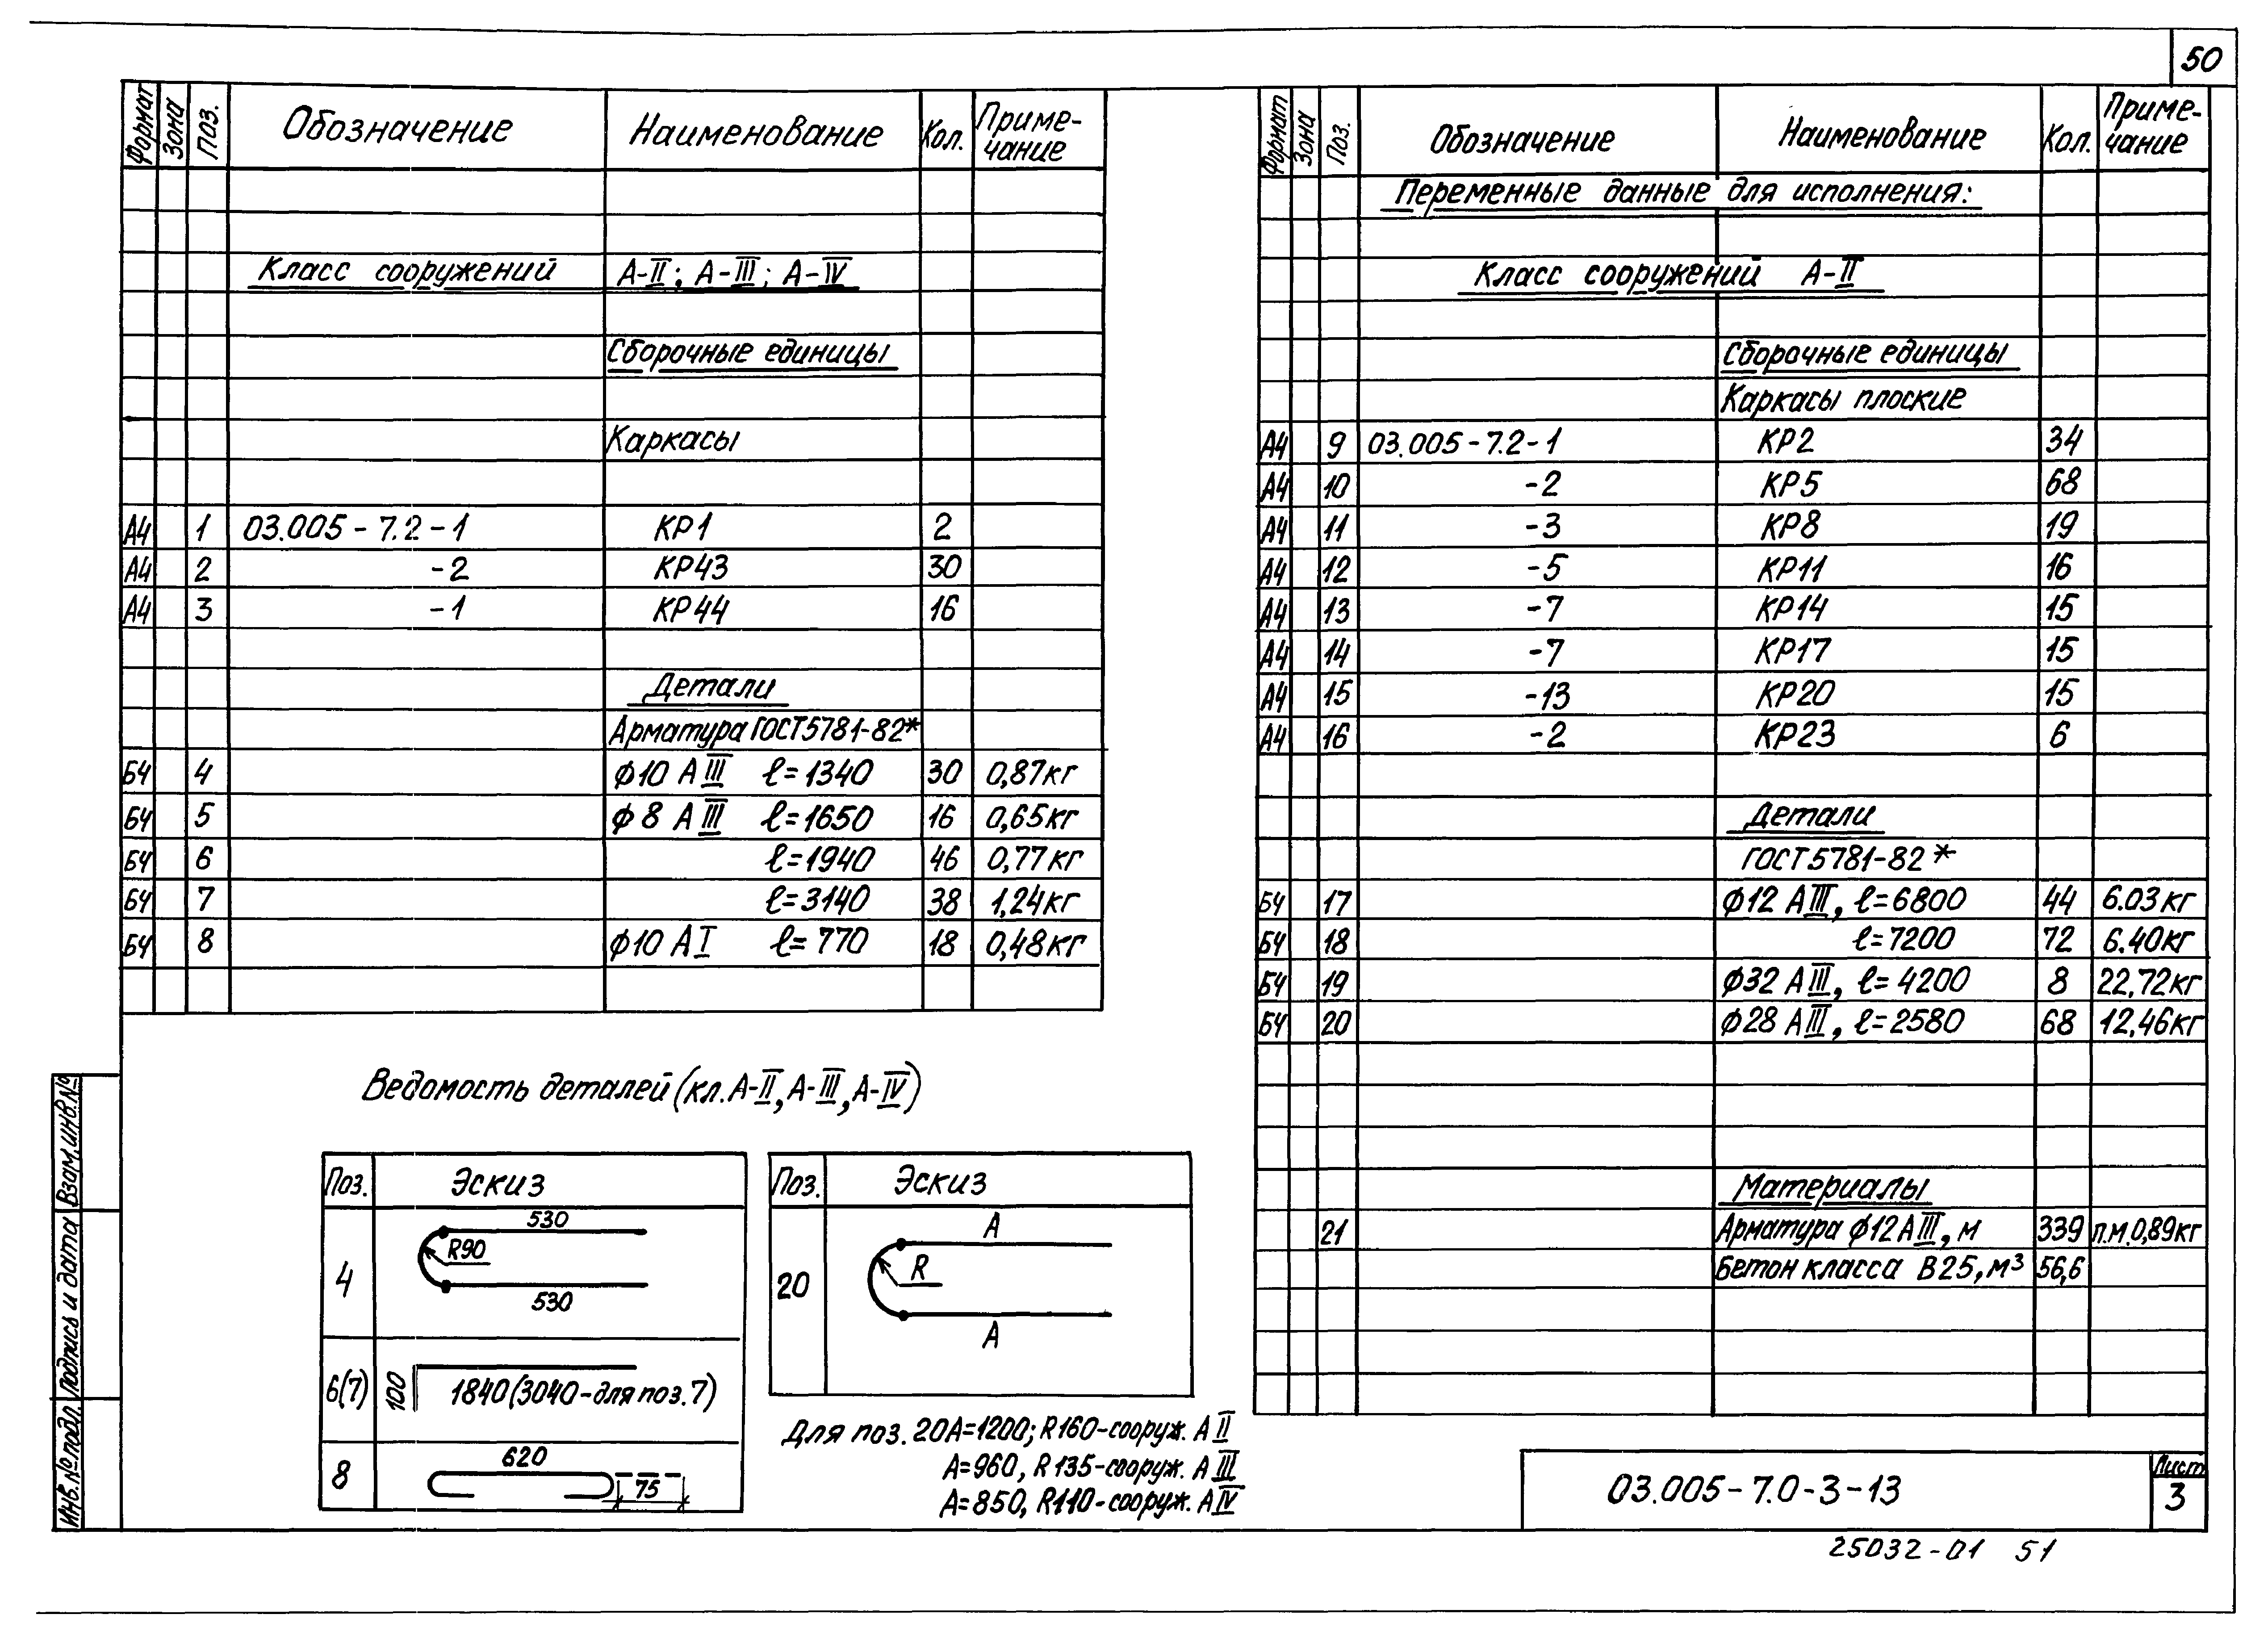 50
Формат Зона Поз. Обозначение Наименование Кол. Приме-чание
Класс сооружений А-II; А-III; А-IV
Сборочные единицы
Каркасы
А4 1 03.005-7.2-1 КР1 2
А4 2 -2 КР43 30
А4 3 -1 КР44 16
Детали
Арматура ГОСТ5781-82*
БЧ 4 ф10 АIII ℓ=1340 30 0,87кг
БЧ 5 ф8 АIII ℓ=1650 16 0,65кг
БЧ 6 ℓ=1940 46 0,77кг
БЧ 7 ℓ=3140 38 1,24кг
БЧ 8 ф10 АI ℓ=770 18 0,48кг
Формат Зона Поз. Обозначение Наименование Кол. Приме-чание
Переменные данные для исполнения:
Класс сооружений А-II
Сборочные единицы
Каркасы плоские
А4 9 03.005-7.2-1 КР2 34
А4 10 -2 КР5 68
А4 11 -3 КР8 19
А4 12 -5 КР11 16
А4 13 -7 КР14 15
А4 14 -7 КР17 15
А4 15 -13 КР20 15
А4 16 -2 КР23 6
Детали
ГОСТ5781-82*
БЧ 17 ф12 АIII, ℓ=6800 44 6.03кг
БЧ 18 ℓ=7200 72 6.40кг
БЧ 19 ф32 АIII, ℓ=4200 8 22,72кг
БЧ 20 ф28 АIII, ℓ=2580 68 12,46кг
Материалы
21 Арматура ф12АIII, м 339 п.м.0,89кг
Бетон класса В25, м³ 56,6
Ведомость деталей (кл. А-II, А-III, А-IV)
Поз. Эскиз
4 530 R90 530
6(7) 100 1840(3040-для поз.7)
8 620 75
Поз. Эскиз
20 А R А
Для поз. 20А=1200; R160-сооруж. А II
А=960, R135-сооруж. А III
А=850, R110-сооруж. А IV
Инв.№подл. Подпись и дата Взам.инв.№
03.005-7.0-3-13
Лист
3
25032-01 51